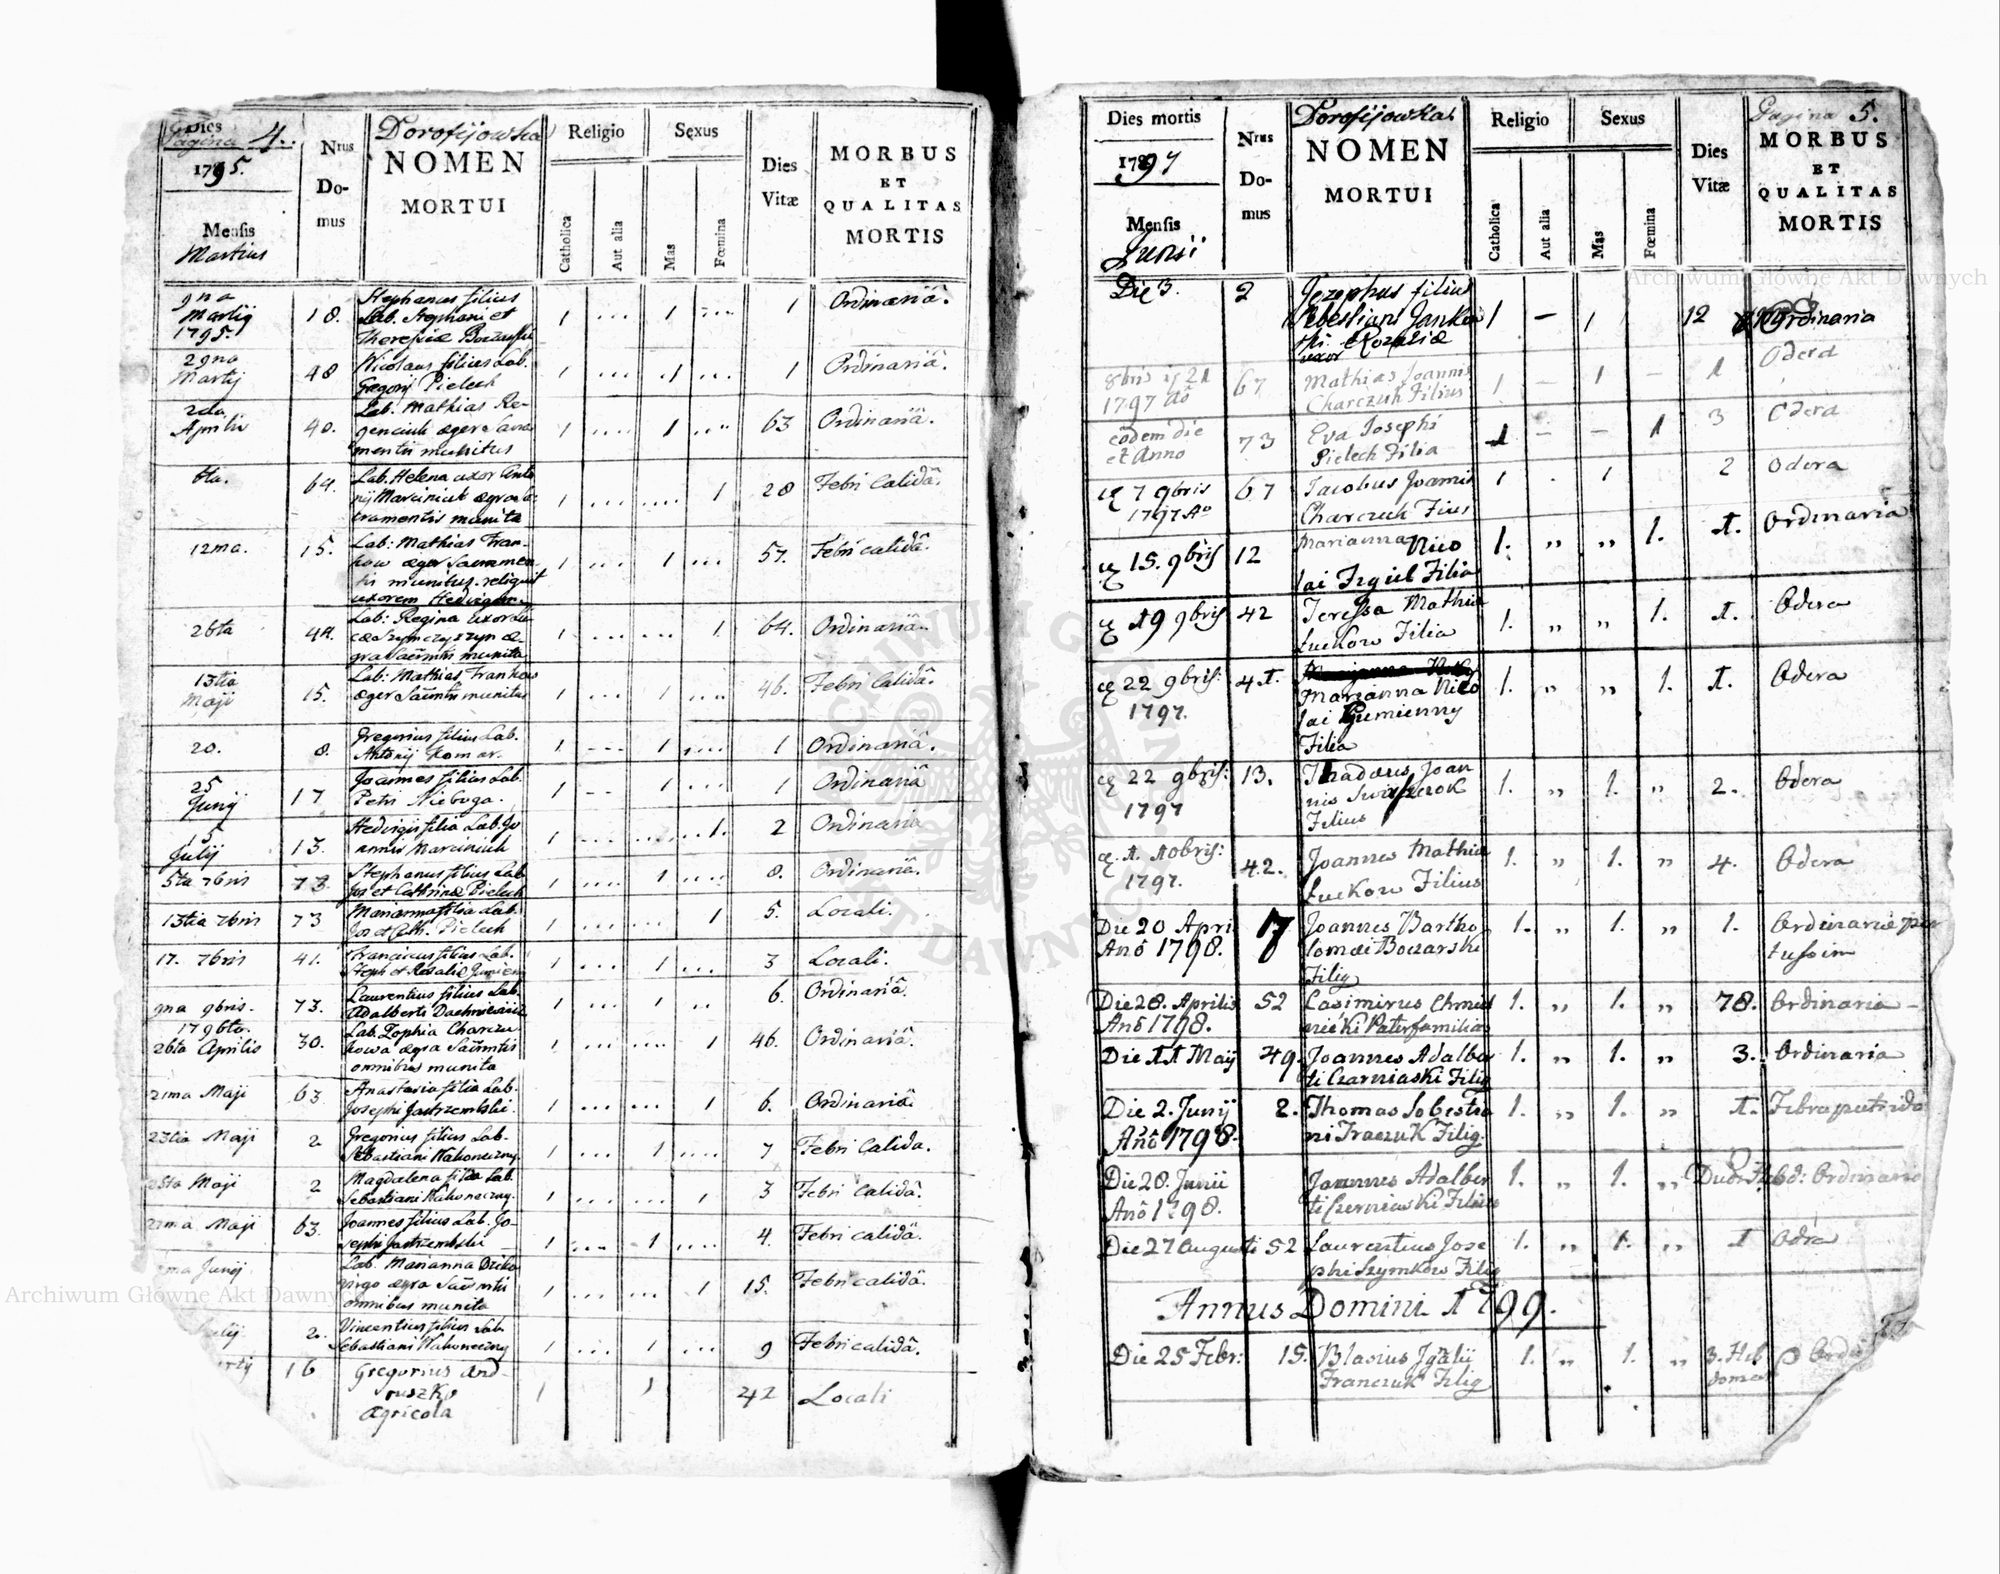 Dies
Pagina 4.
1795.
Mensis
Martius
Nrus
Do-
mus
Dorofijowka
NOMEN
MORTUI
Religio
Catholica
Aut alia
Sexus
Mas
Fœmina
Dies
Vitæ
MORBUS
ET
QUALITAS
MORTIS
9na Martij 1795. 18. Stephanus filius 1 ... 1 ... 1 Ordinariâ.
Lab. Stephani et
Theresiæ
29na Martij 48 Nicolaus filius Lab. 1 ... 1 ... 1 Ordinariâ.
Gregorij Pielech
2da Aprilis 40. Lab. Mathias Re- 1 .... 1 ... 63 Ordinariâ.
genciuk æger Sacra
mentis munitus
6ta. 64. Lab. Helena uxor Anto 1 .... 1 28 Febri Calidâ.
nij Marciniuk ægra Sa-
cramentis munita
12ma. 15. Lab: Mathias Fran- 1 ... 1 ... 57. Febri calidâ.
kow æger Sacramen-
tis munitus. reliquit
uxorem Hedvigem.
26ta 44. Lab: Regina uxor 1 ... ... 1 64. Ordinariâ.
Szymczyszyn æ-
gra Sacrmtis munita
13tia Maji 15. Lab: Mathias Frankow 1 ... 1 ... 46. Febri Calidâ.
æger Sacrmtis munitus
20. 8. Gregorius filius Lab. 1 ... 1 .... 1 Ordinariâ.
Antonij Komar.
25 Junij 17 Joannes filius Lab. 1 ... 1 ... 1 Ordinariâ
Petri Nieboga.
15 Julij 13. Hedvigis filia Lab. Jo 1 .... ... 1. 2 Ordinaria
annis Marciniuk
5ta 7bris 73. Stephanus filius Lab 1 .... 1 .... 8. Ordinariâ.
Jos et Cathrinæ Pielech
13tia 7bris 73 Marianna filia Lab. 1 .... 1 5. Locali.
Jos et Cath. Pielech
17. 7bris 41. Franciscus filius Lab. 1 ... 1 ... 3 Locali.
Steph et Rosaliæ
9na 9bris. 73. Laurentius filius Lab. 1 ... 1 ... 6. Ordinariâ.
Adalberti
1796to.
26ta Aprilis 30. Lab. Zophia Charczu- 1 ... ... 1 46. Ordinariâ.
kowa ægra Sacrmtis
omnibus munita
21ma Maji 63 Anastasia filia Lab. 1 ... ... 1 6. Ordinariâ.
Josephi Jastrzembski.
23tia Maji 2 Gregorius filius Lab. 1 ... 1 .... 7 Febri Calida.
Sebastiani Nakoneczny.
Maji 2 Magdalena filia Lab. 1 .... ... 1 3 Febri Calidâ.
Sebastiani Nakoneczny.
Maji 63. Joannes filius Lab. Jo- 1 .... 1 .... 4. Febri calidâ.
sephi Jastrzembski
Junij Lab. Marianna 1 ... ... 1 15. Febri calidâ.
virgo ægra Sacrmtis
omnibus munita
2. Vincentius filius Lab. 1 ... 1 ... 9 Febri calidâ.
Sebastiani Nakoneczny
16 Gregorius And- 1 1 42 Locali
ruszko
Agricola
Dies mortis
1797
Mensis
Junii
Nrus
Do-
mus
Dorofijowka
NOMEN
MORTUI
Religio
Catholica
Aut alia
Sexus
Mas
Fœmina
Dies
Vitæ
Pagina 5.
MORBUS
ET
QUALITAS
MORTIS
Die 3. 2 Jozephus filius 1 – 1 12 Ordinaria
Sebestiani
Rozaliæ
uxor
8bris 21 67 Mathias Joannis 1 – 1 – 1 Odera
1797 Charczuk Filius
eodem die 73 Eva Josephi 1 – – 1 3 Odera
et Anno Pielech Filia
7 9bris 67 Jacobus Joannis 1 . 1 2 Odera
1797 Ao Charczuk
15. 9bris 12 Marianna Nico 1. „ „ 1. 1. Ordinaria
lai Filia
19 9bris 42 Teressa Mathia 1. „ „ 1. 1. Odera
Łuckow Filia
22 9bris: 41. Marianna Nico 1. „ „ 1. 1. Odera
1797. lai Gumienny
Filia
22 9bris: 13. Thadæus Joan 1. „ 1. „ 2. Odera
1797 nis
Filius
1. 10bris: 42. Joannes Mathia 1. „ 1. „ 4. Odera
1797. Łuckow Filius
Die 20 Apri 17 Joannes Bartho 1. „ 1. „ 1. Ordinaria per
Ano 1798. lomæi Boczarski tussim
Filig
Die 28. Aprilis 52 Casimirus Chmiel 1. „ 1. „ 78. Ordinaria
Ano 1798. nicki Paterfamilias
Die 11 Maij 49. Joannes Adalber 1. „ 1. „ 3. Ordinaria
ti Czarniaski Filig
Die 2. Junij 2. Thomas Sobestia 1. „ 1. „ 1. Febra putrida
Ano 1798. ni Fraczuk Filig.
Die 28. Junii Joannes Adalber 1. „ 1. „ Ordinaria
Ano 1798. ti Czerniaski Filius
Die 27 Augusti 52 Laurentius Jose 1. „ 1. „ 1 Odra
phi Szymkow Filig
Annus Domini 1799.
Die 25 Febr: 15. Blasius 1. „ 1. „ 3. Heb
Franczuk Filig domad
Archiwum Główne Akt Dawnych
Archiwum Główne Akt Dawnych
ARCHIWUM GŁÓWNE
AKT DAWNYCH